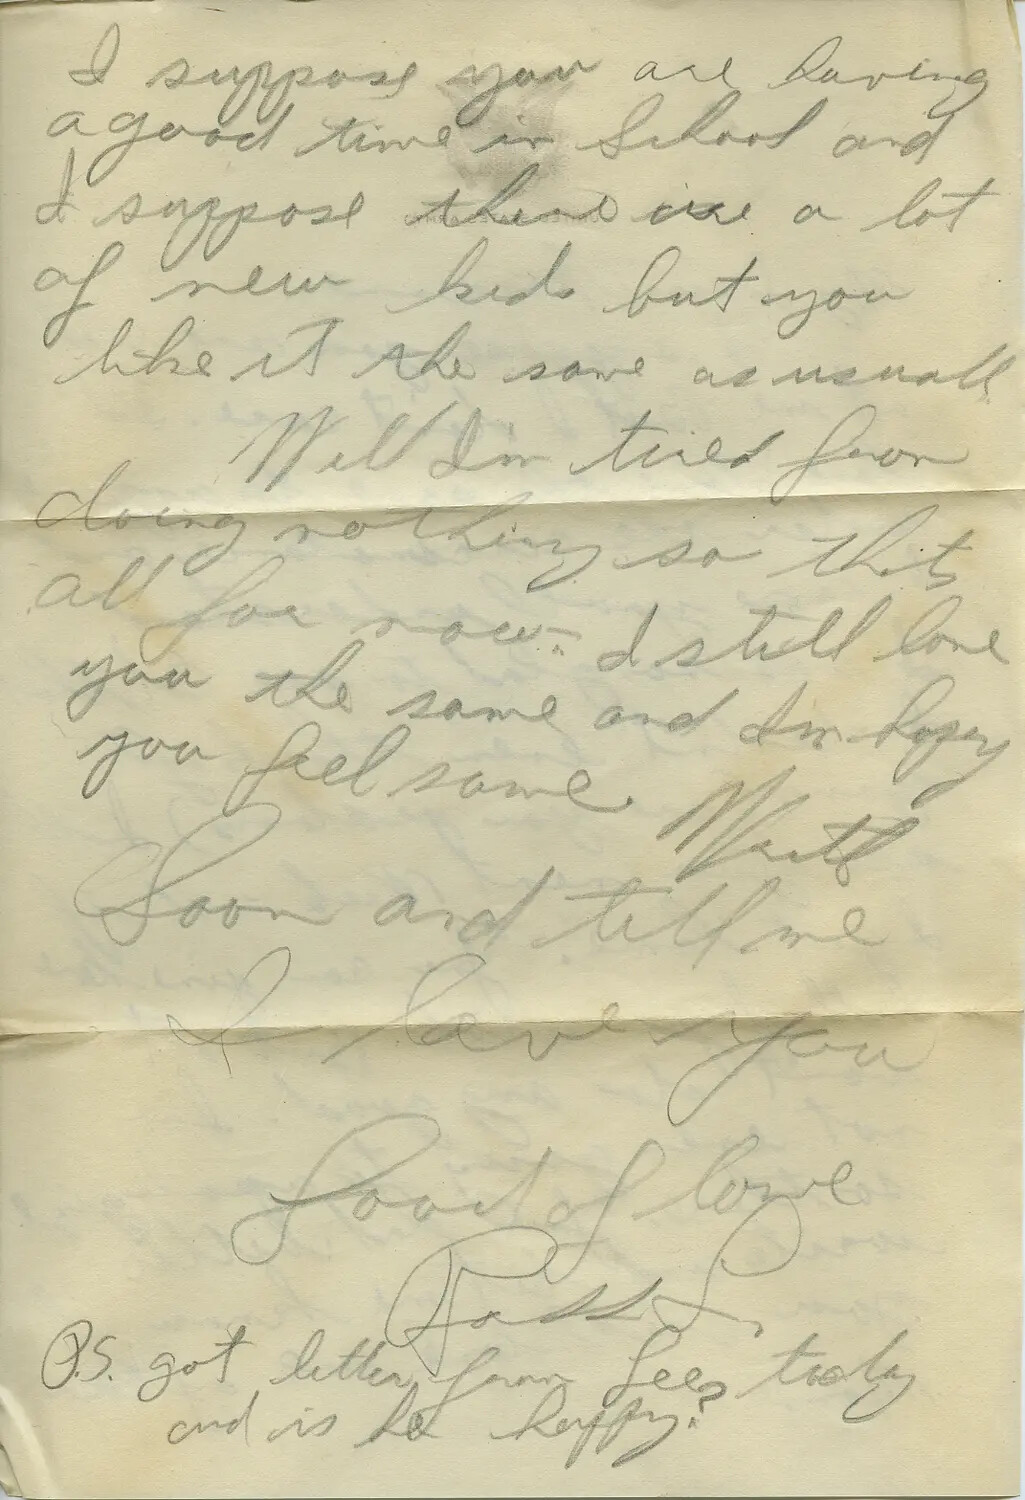 I suppose you are having
a good time in School and
I suppose there are a lot
of new kids but you
like it the same as usuall
Well I'm tired from
doing nothing so thats
all for now. I still love
you the same and I'm hopeing
you feel same. Write
Soon and tell me
I love you
of love
P.S. got letter from today
and is he happy?